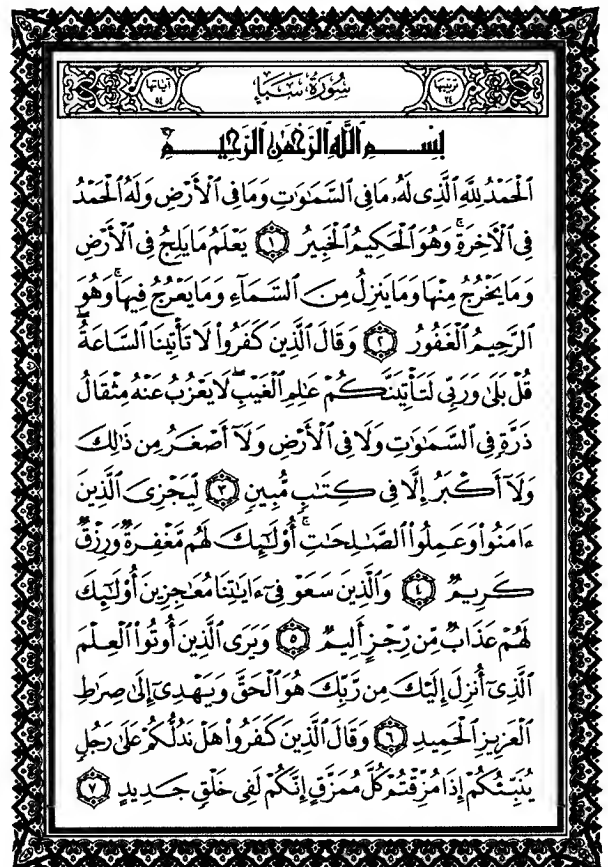 ترتيبها ٣٤
سُورَةُ سَبَإٍ
آياتها ٥٤
بِسْمِ ٱللَّهِ ٱلرَّحْمَٰنِ ٱلرَّحِيمِ
ٱلْحَمْدُ لِلَّهِ ٱلَّذِى لَهُۥ مَا فِى ٱلسَّمَٰوَٰتِ وَمَا فِى ٱلْأَرْضِ وَلَهُ ٱلْحَمْدُ
فِى ٱلْأَخِرَةِۚ وَهُوَ ٱلْحَكِيمُ ٱلْخَبِيرُ ١ يَعْلَمُ مَا يَلِجُ فِى ٱلْأَرْضِ
وَمَا يَخْرُجُ مِنْهَا وَمَا يَنزِلُ مِنَ ٱلسَّمَآءِ وَمَا يَعْرُجُ فِيهَاۚ وَهُوَ
ٱلرَّحِيمُ ٱلْغَفُورُ ٢ وَقَالَ ٱلَّذِينَ كَفَرُوا۟ لَا تَأْتِينَا ٱلسَّاعَةُۖ
قُلْ بَلَىٰ وَرَبِّى لَتَأْتِيَنَّكُمْ عَٰلِمِ ٱلْغَيْبِۖ لَا يَعْزُبُ عَنْهُ مِثْقَالُ
ذَرَّةٍ فِى ٱلسَّمَٰوَٰتِ وَلَا فِى ٱلْأَرْضِ وَلَآ أَصْغَرُ مِن ذَٰلِكَ
وَلَآ أَكْبَرُ إِلَّا فِى كِتَٰبٍ مُّبِينٍ ٣ لِّيَجْزِىَ ٱلَّذِينَ
ءَامَنُوا۟ وَعَمِلُوا۟ ٱلصَّٰلِحَٰتِۚ أُو۟لَٰٓئِكَ لَهُم مَّغْفِرَةٌ وَرِزْقٌ
كَرِيمٌ ٤ وَٱلَّذِينَ سَعَوْ فِىٓ ءَايَٰتِنَا مُعَٰجِزِينَ أُو۟لَٰٓئِكَ
لَهُمْ عَذَابٌ مِّن رِّجْزٍ أَلِيمٌ ٥ وَيَرَى ٱلَّذِينَ أُوتُوا۟ ٱلْعِلْمَ
ٱلَّذِىٓ أُنزِلَ إِلَيْكَ مِن رَّبِّكَ هُوَ ٱلْحَقَّ وَيَهْدِىٓ إِلَىٰ صِرَٰطِ
ٱلْعَزِيزِ ٱلْحَمِيدِ ٦ وَقَالَ ٱلَّذِينَ كَفَرُوا۟ هَلْ نَدُلُّكُمْ عَلَىٰ رَجُلٍ
يُنَبِّئُكُمْ إِذَا مُزِّقْتُمْ كُلَّ مُمَزَّقٍ إِنَّكُمْ لَفِى خَلْقٍ جَدِيدٍ ٧